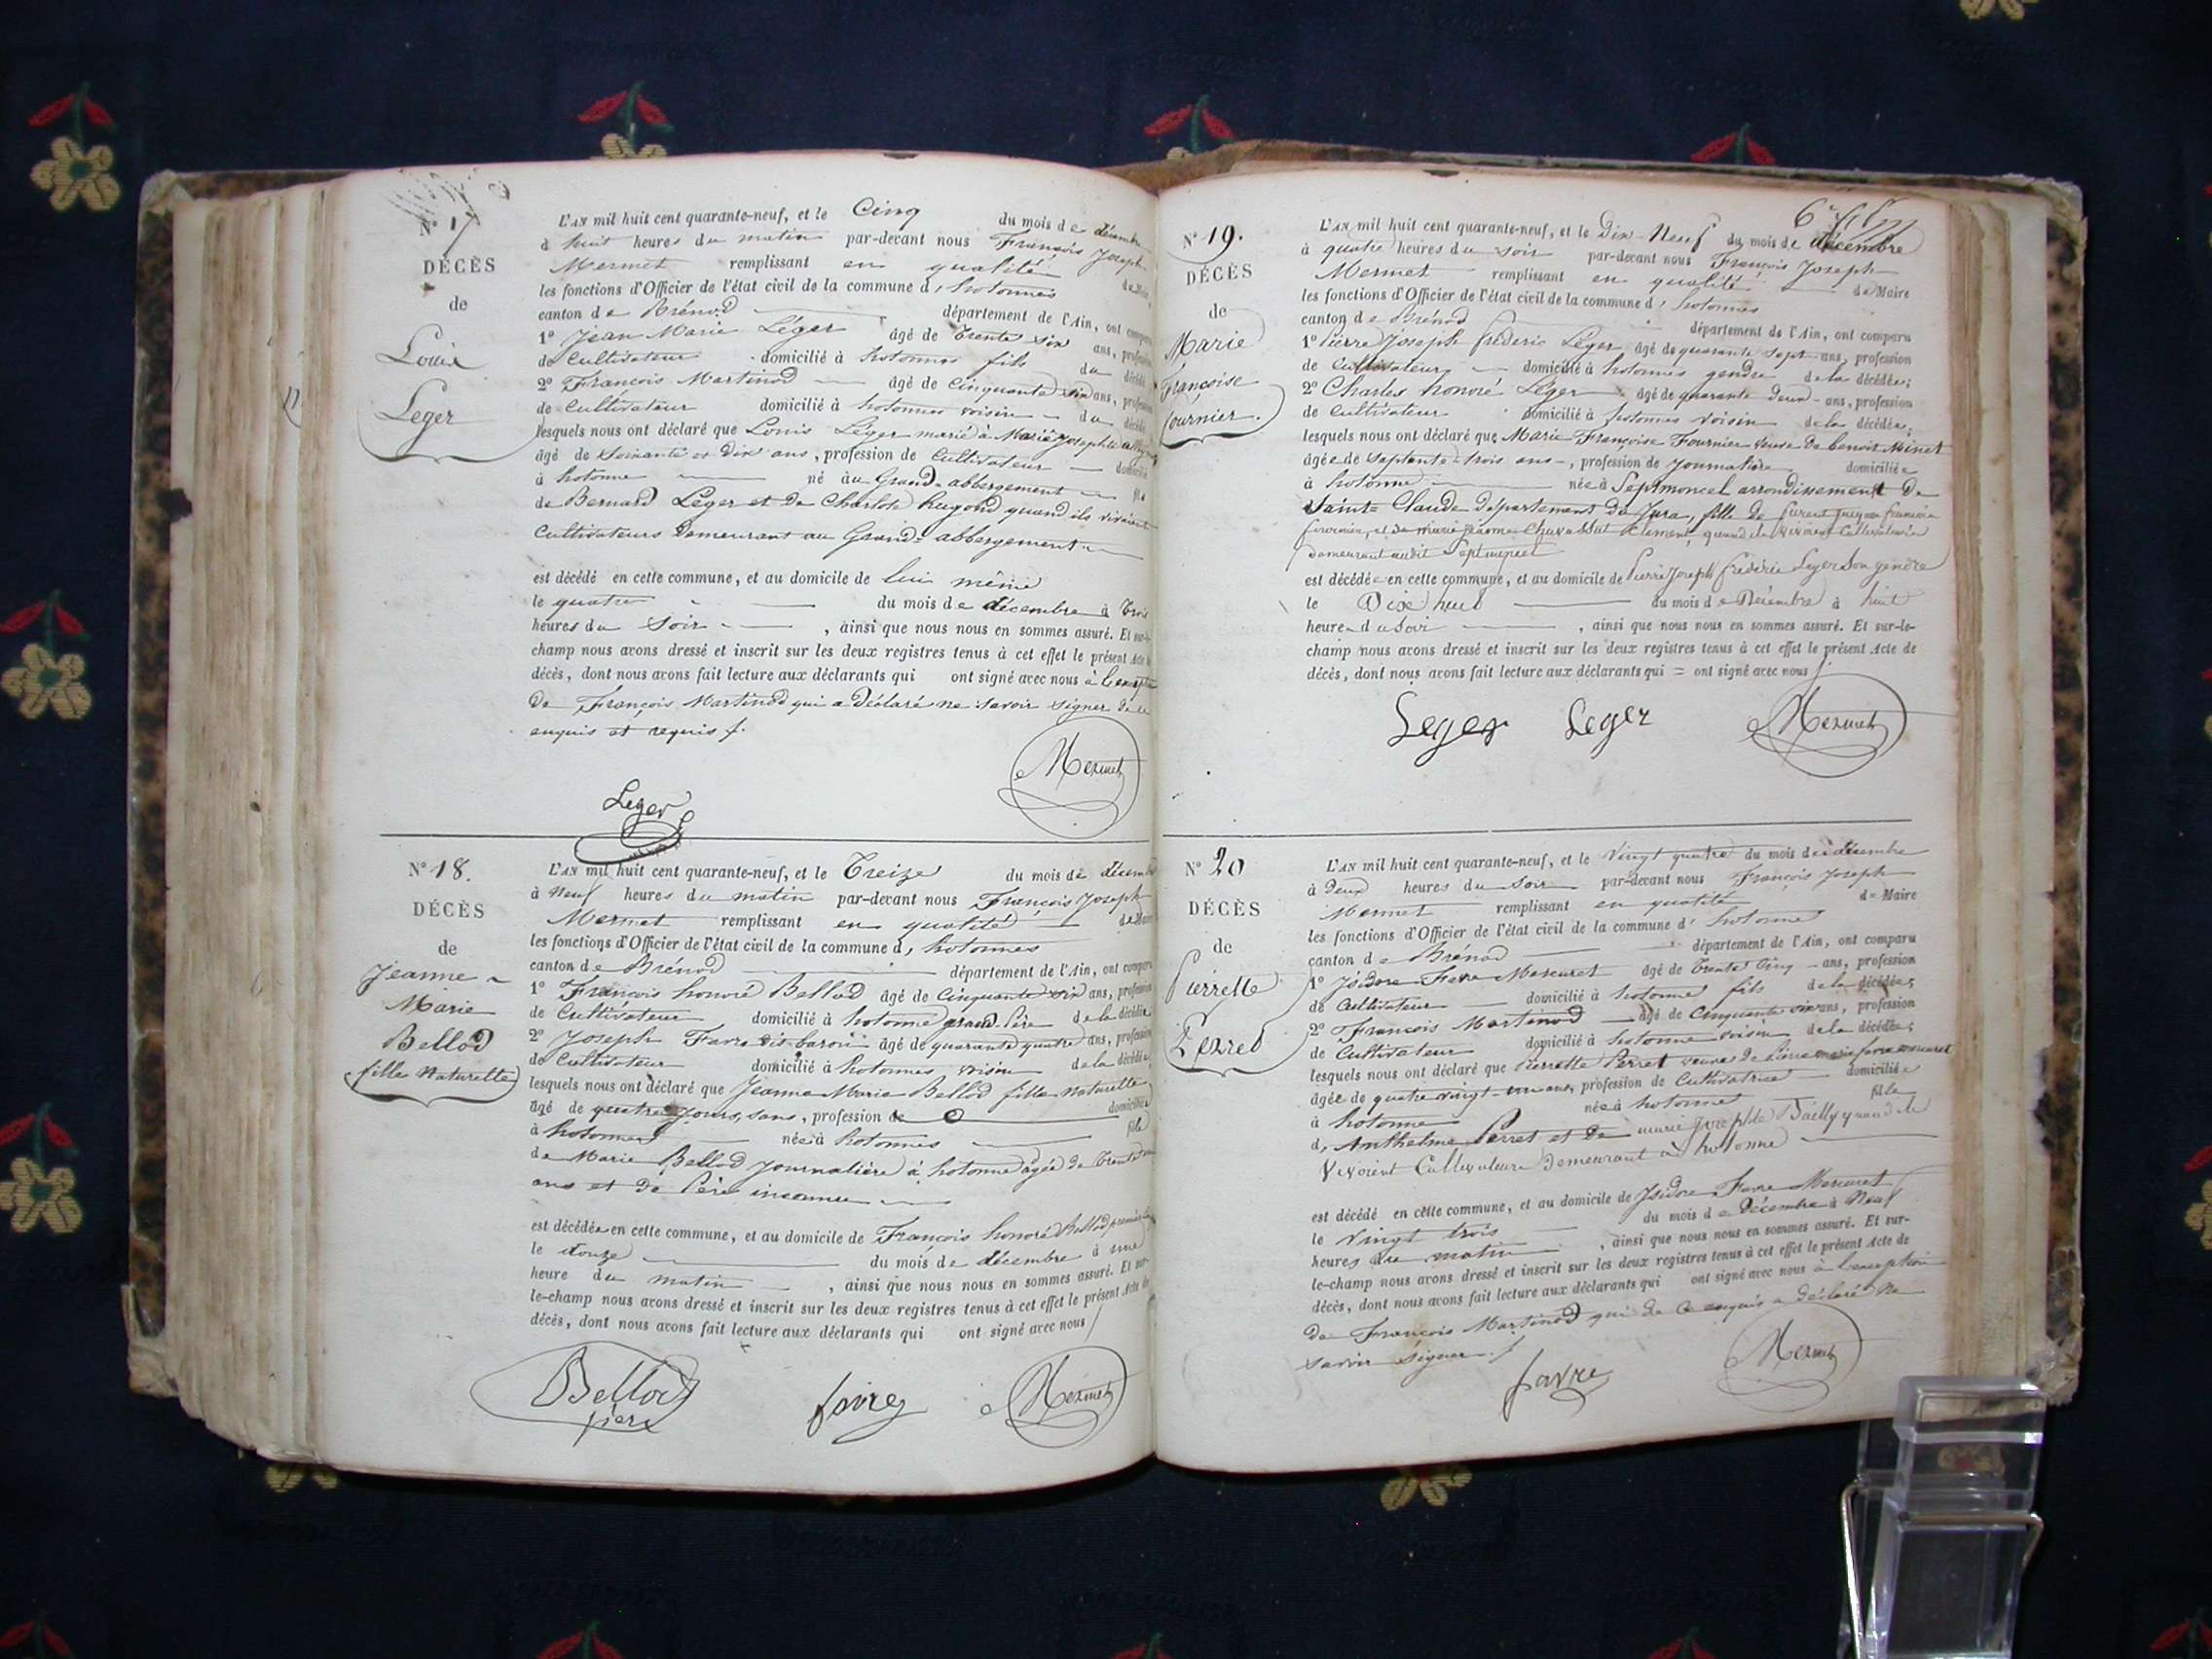 N° 17
DÉCÈS
de
Louis
Léger
L'AN mil huit cent quarante-neuf, et le Cinq du mois de décembre
à huit heures du matin par-devant nous François Joseph
Mermet remplissant en qualité de Maire
les fonctions d'Officier de l'état civil de la commune d, hotonnes
canton de Brénod département de l'Ain, ont comparu
1° Jean Marie Léger âgé de Trente six ans, profession
de Cultivateur domicilié à hotonnes fils du décédé
2° François Martinod âgé de Cinquante six ans, profession
de Cultivateur domicilié à hotonnes voisin du décédé
lesquels nous ont déclaré que Louis Léger marié à Marie Josephte
âgé de Soixante et Dix ans, profession de Cultivateur domicilié
à hotonne né au Grand-abbergement fils
de Bernard Léger et de Charlote hugond quand ils vivaient
Cultivateurs Demeurant au Grand-abbergement
est décédé en cette commune, et au domicile de lui même
le quatre du mois de décembre à Trois
heures du Soir, ainsi que nous nous en sommes assuré. Et sur-le-
champ nous avons dressé et inscrit sur les deux registres tenus à cet effet le présent Acte de
décès, dont nous avons fait lecture aux déclarants qui ont signé avec nous à l'exception
De François Martinod qui a déclaré ne savoir signer de ce
enquis et requis
Leger
Mermet
N° 18.
DÉCÈS
de
Jeanne
Marie
Bellod
fille Naturelle
L'AN mil huit cent quarante-neuf, et le Treize du mois de décembre
à neuf heures du matin par-devant nous François Joseph
Mermet remplissant en qualité de Maire
les fonctions d'Officier de l'état civil de la commune d, hotonnes
canton de Brénod département de l'Ain, ont comparu
1° François honoré Bellod âgé de Cinquante six ans, profession
de Cultivateur domicilié à hotonne grand Père de la décédée
2° Joseph Favre dit baron âgé de quarante quatre ans, profession
de Cultivateur domicilié à hotonnes voisin de la décédée
lesquels nous ont déclaré que Jeanne Marie Bellod fille naturelle
âgé de quatre jours, sans, profession de domiciliée
à hotonnes née à hotonnes fille
de Marie Bellod Journalière à hotonne âgée de Trente
ans et de Père inconnu
est décédée en cette commune, et au domicile de François honoré Bellod
le douze du mois de décembre à une
heure du matin, ainsi que nous nous en sommes assuré. Et sur-
le-champ nous avons dressé et inscrit sur les deux registres tenus à cet effet le présent Acte de
décès, dont nous avons fait lecture aux déclarants qui ont signé avec nous
Bellod
père
favre
Mermet
N° 19.
DÉCÈS
de
Marie
Françoise
fournier.
L'AN mil huit cent quarante-neuf, et le Dix-Neuf du mois de décembre
à quatre heures du soir par-devant nous François Joseph
Mermet remplissant en qualité de Maire
les fonctions d'Officier de l'état civil de la commune d, hotonnes
canton de Brénod département de l'Ain, ont comparu
1° Pierre Joseph fréderic Léger âgé de quarante sept ans, profession
de Cultivateur domicilié à hotonnes gendre de la décédée;
2° Charles honoré Léger âgé de quarante deux ans, profession
de Cultivateur domicilié à hotonnes voisin de la décédée;
lesquels nous ont déclaré que Marie Françoise Fournier veuve de benoit Minet
âgée de Septante-trois ans, profession de Journalière domiciliée
à hotonne née à Septmoncel arrondissement de
Sainte Claude Département du Jura, fille de
fournier, et de marie jeanne quand ils vivoient Cultivateurs
demeurant audit Septmoncel
est décédée en cette commune, et au domicile de Pierre Joseph fréderic Leger Son gendre
le Dix huit du mois de Décembre à huit
heures du Soir, ainsi que nous nous en sommes assuré. Et sur-le-
champ nous avons dressé et inscrit sur les deux registres tenus à cet effet le présent Acte de
décès, dont nous avons fait lecture aux déclarants qui = ont signé avec nous
Leger Leger Mermet
N° 20
DÉCÈS
de
Pierrette
Perret
L'AN mil huit cent quarante-neuf, et le Vingt quatre du mois de décembre
à Deux heures du Soir par-devant nous François Joseph
Mermet remplissant en qualité de Maire
les fonctions d'Officier de l'état civil de la commune d' hotonne
canton de Brénod département de l'Ain, ont comparu
1° Isidore Favre Marcuret âgé de Trente Cinq ans, profession
de Cultivateur domicilié à hotonne fils de la décédée;
2° François Martinod âgé de Cinquante six ans, profession
de Cultivateur domicilié à hotonne voisin de la décédée;
lesquels nous ont déclaré que Pierrette Perret veuve de Pierre marie favre marcuret
âgée de quatre vingt-un ans, profession de Cultivatrice domiciliée
à hotonne née à hotonne fille
d, Anthelme Perret et de marie Josephte Bailly quand ils
Vivoient Cultivateurs Demeurant à hotonne
est décédé en cette commune, et au domicile de Isidore Favre Marcuret
le Vingt trois du mois de Décembre à Neuf
heures du matin, ainsi que nous nous en sommes assuré. Et sur-
le-champ nous avons dressé et inscrit sur les deux registres tenus à cet effet le présent Acte de
décès, dont nous avons fait lecture aux déclarants qui ont signé avec nous à l'exception
de François Martinod qui de ce enquis a déclaré ne
savoir signer
favre
Mermet